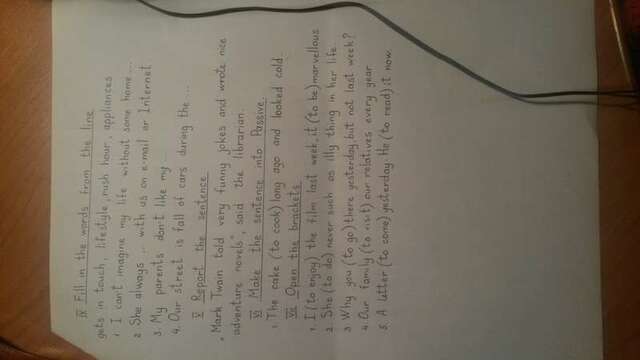 IV Fill in the words from the line
gets in touch, lifestyle, rush hour, appliances
1 I can't imagine my life without some home ...
2 She always ... with us on e-mail or Internet
3. My parents don't like my ...
4. Our street is fall of cars during the ...
V Report the sentence
"Mark Twain told very funny jokes and wrote nice
adventure novels", said the librarian.
VI Make the sentence into Passive.
1 The cake (to cook) long ago and looked cold.
VII Open the brackets
1. I (to enjoy) the film last week, it (to be) marvellous
2. She (to do) never such as illy thing in her life
3 Why you (to go) there yesterday, but not last week?
4. Our family (to visit) our relatives every year
5. A letter (to come) yesterday. He (to read) it now.